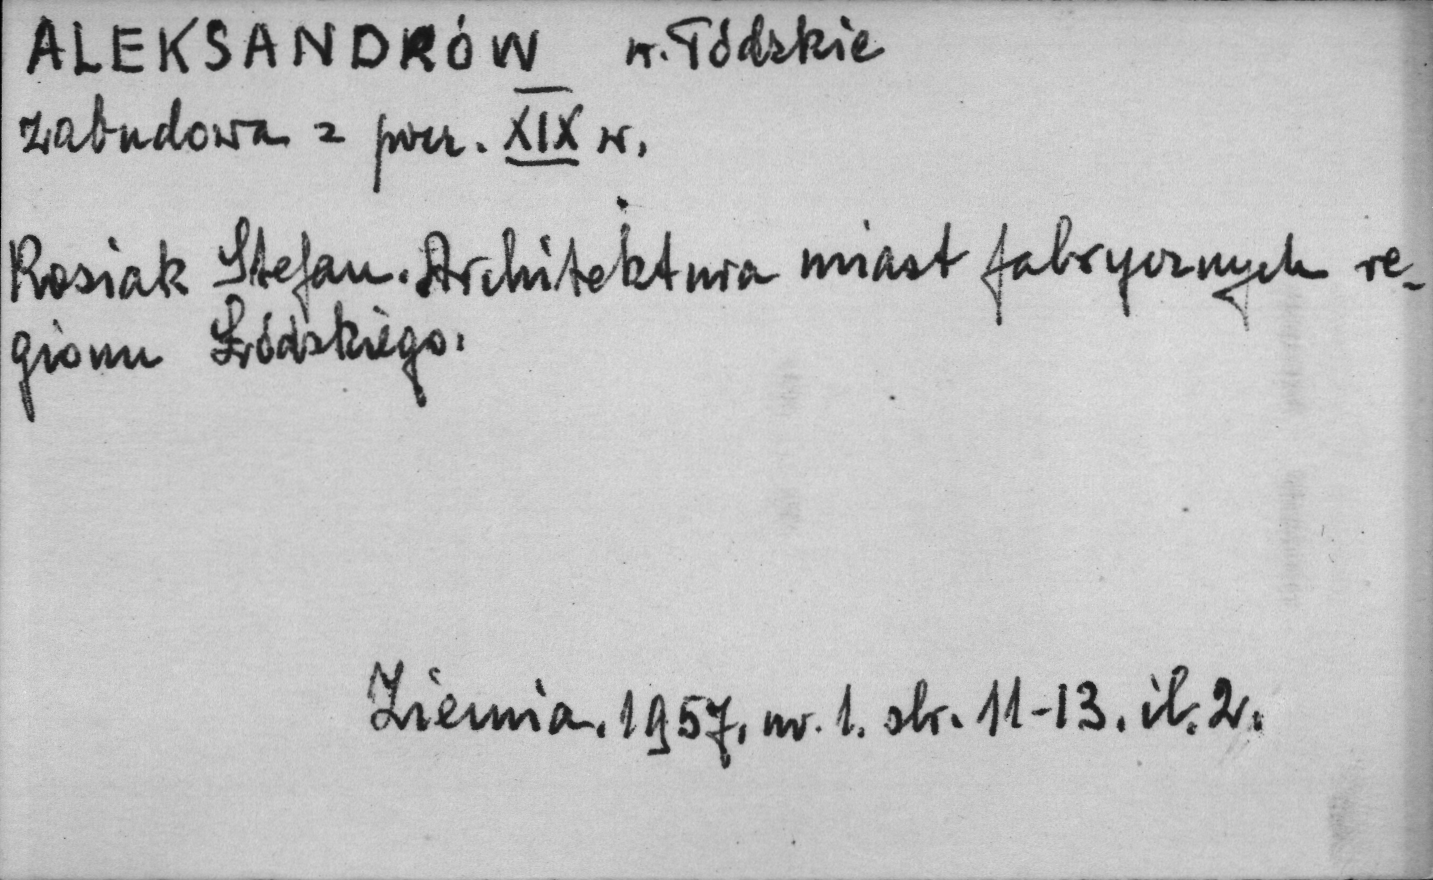 ALEKSANDRÓW w. Łódzkie
zabudowa z pocz. XIX w.
Rosiak Stefan. Architektura miast fabrycznych re-
gionu Łódzkiego.
Ziemia. 1957, nr. 1. str. 11-13. il. 2.